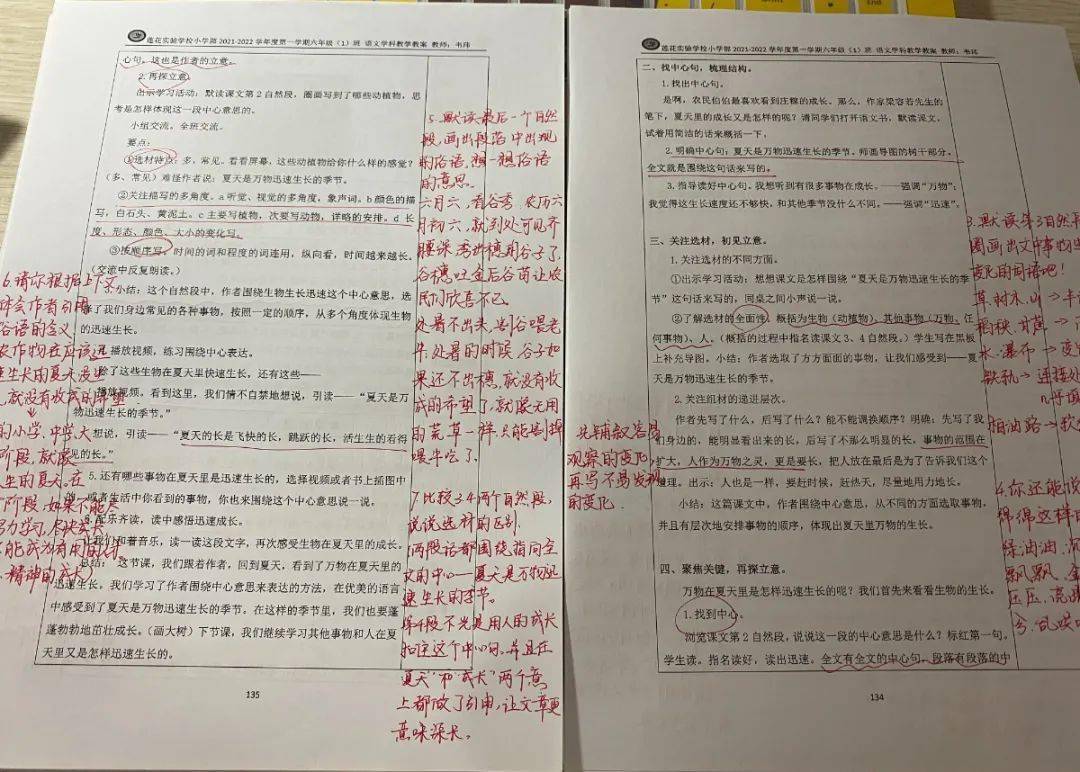 莲花实验学校小学部 2021-2022 学年度第一学期六年级（1）班 语文学科教学教案 教师：韦玮
心句。这也是作者的立意。
2.再探立意。
出示学习活动：默读课文第2自然段，圈画写到了哪些动植物，思
考是怎样体现这一段中心意思的。
小组交流。全班交流。
要点：
①选材特点：多，常见。看看屏幕，这些动植物给你什么样的感觉？
（多、常见）难怪作者说：夏天是万物迅速生长的季节。
②关注描写的多角度。a 听觉、视觉的多角度，象声词。b 颜色的描
写，白石头、黄泥土。c 主要写植物，次要写动物，详略的安排。d 长
度、形态、颜色、大小的变化写。
③按顺序写：时间的词和程度的词连用，纵向看，时间越来越长。
（交流中反复朗读。）
小结：这个自然段中，作者围绕生物生长迅速这个中心意思，选
择了我们身边常见的各种事物，按照一定的顺序，从多个角度体现生物
的迅速生长。
播放视频，练习围绕中心表达。
除了这些生物在夏天里快速生长，还有这些——
播放视频。看到这里，我们情不自禁地想说，引读——“夏天是万
物迅速生长的季节。”
想说，引读——“夏天的长是飞快的长，跳跃的长，活生生的看得
见的长。”
5.还有哪些事物在夏天里是迅速生长的，选择视频或者书上插图中
或者生活中你看到的事物，你也来围绕这个中心意思说一说。
配乐齐读，读中感悟迅速成长。
让我们和着音乐，读一读这段文字，再次感受生物在夏天里的成长。
总结：这节课，我们跟着作者，回到夏天，看到了万物在夏天里的
迅速生长，我们学习了作者围绕中心意思来表达的方法，在优美的语言
中感受到了夏天是万物迅速生长的季节。在这样的季节里，我们也要蓬
蓬勃勃地茁壮成长。（画大树）下节课，我们继续学习其他事物和人在夏
天里又是怎样迅速生长的。
135
5.默读最后一个自然
段，画出段落中出现
的俗语，想一想俗语
的意思。
六月六，看谷秀，农历六
月初六，就到处可见齐
腰深 秀出穗用谷子了，
谷穗吐金后谷苗让农
民们欣喜不已。
处暑不出来，割谷喂老
牛，处暑的时候 谷子如
果还不出穗，就没有收
成的希望了，就跟无用
的荒草一样，只能割掉
喂牛吃了。
7.比较3.4两个自然段，
说说选材的区别
两段话都围绕指向全
文的中心——夏天是万物迅
速生长的季节。
第4段不光是用人的成长
扣住这个中心句，并且在
“夏天”和“成长”两个意
上都做了引申，让文章更
意味深长。
6.请你根据上下文
体会作者引用
俗语的含义
农作物在应该迅
速生长的夏天没迅
，就没有收成的希望
的小学、中学、大
阶段，就跟
生的夏天。在
阶段，如果不能尽
力学习，尽快成长
能成为有用的材
精神的成长
莲花实验学校小学部 2021-2022 学年度第一学期六年级（1）班 语文学科教学教案 教师：韦玮
二、找中心句，梳理结构。
1.找出中心句。
是啊，农民伯伯最喜欢看到庄稼的成长。那么，作家梁容若先生的
笔下，夏天里的成长又是怎样的呢？请同学们打开语文书，默读课文，
试着用简洁的话来概括一下。
2.明确中心句：夏天是万物迅速生长的季节。师画导图的树干部分。
全文就是围绕这句话来写的。
3.指导读好中心句。我想听到有很多事物在成长。——强调“万物”；
我觉得这生长速度还不够快，和其他季节没什么不同。——强调“迅速”。
三、关注选材，初见立意。
1.关注选材的不同方面。
①出示学习活动：想想课文是怎样围绕“夏天是万物迅速生长的季
节”这句话来写的，同桌之间小声说一说。
②了解选材的全面性，概括为生物（动植物）、其他事物（万物、任
何事物）、人。（概括的过程中指名读课文3、4自然段。）学生写在黑板
上补充导图。小结：作者选取了方方面面的事物，让我们感受到——夏
天是万物迅速生长的季节。
2.关注组材的递进层次。
作者先写了什么，后写了什么？能不能调换顺序？明确：先写了我
们身边的，能明显看出来的长，后写了不那么明显的长，事物的范围在
扩大，人作为万物之灵，更是要长，把人放在最后是为了告诉我们这个
道理。出示：人也是一样，要赶时候，赶热天，尽量地用力地长。
小结：这篇课文中，作者围绕中心意思，从不同的方面选取事物，
并且有层次地安排事物的顺序，体现出夏天里万物的生长。
四、聚焦关键，再探立意。
万物在夏天里是怎样迅速生长的呢？我们首先来看看生物的生长。
1.找到中心。
浏览课文第2自然段，说说这一段的中心意思是什么？标红第一句。
学生读。指名读好，读出迅速。全文有全文的中心句，段落有段落的中
134
先铺叙容易
观察的变化，
再写不易发现
的变化。
3.默读第3自然段
圈画出文中事物
变化的词语吧！
草、树木、山
稻秧、甘蔗
水、瀑布
铁轨 连接处
柏油路→软
4.你还能说
棉得这样的
绿油油、沉
飘飘、金
压压、亮